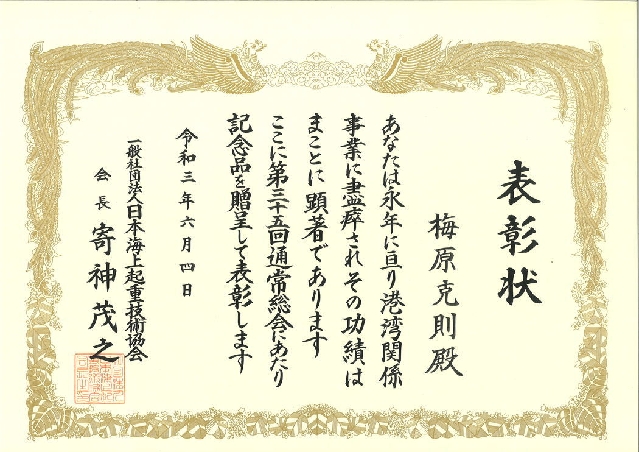 表彰状
梅原克則殿
あなたは永年に亘り港湾関係
事業に盡瘁されその功績は
まことに顕著であります
ここに第三十五回通常総会にあたり
記念品を贈呈して表彰します
令和三年六月四日
一般社団法人日本海上起重技術協会
会長 寄神茂之